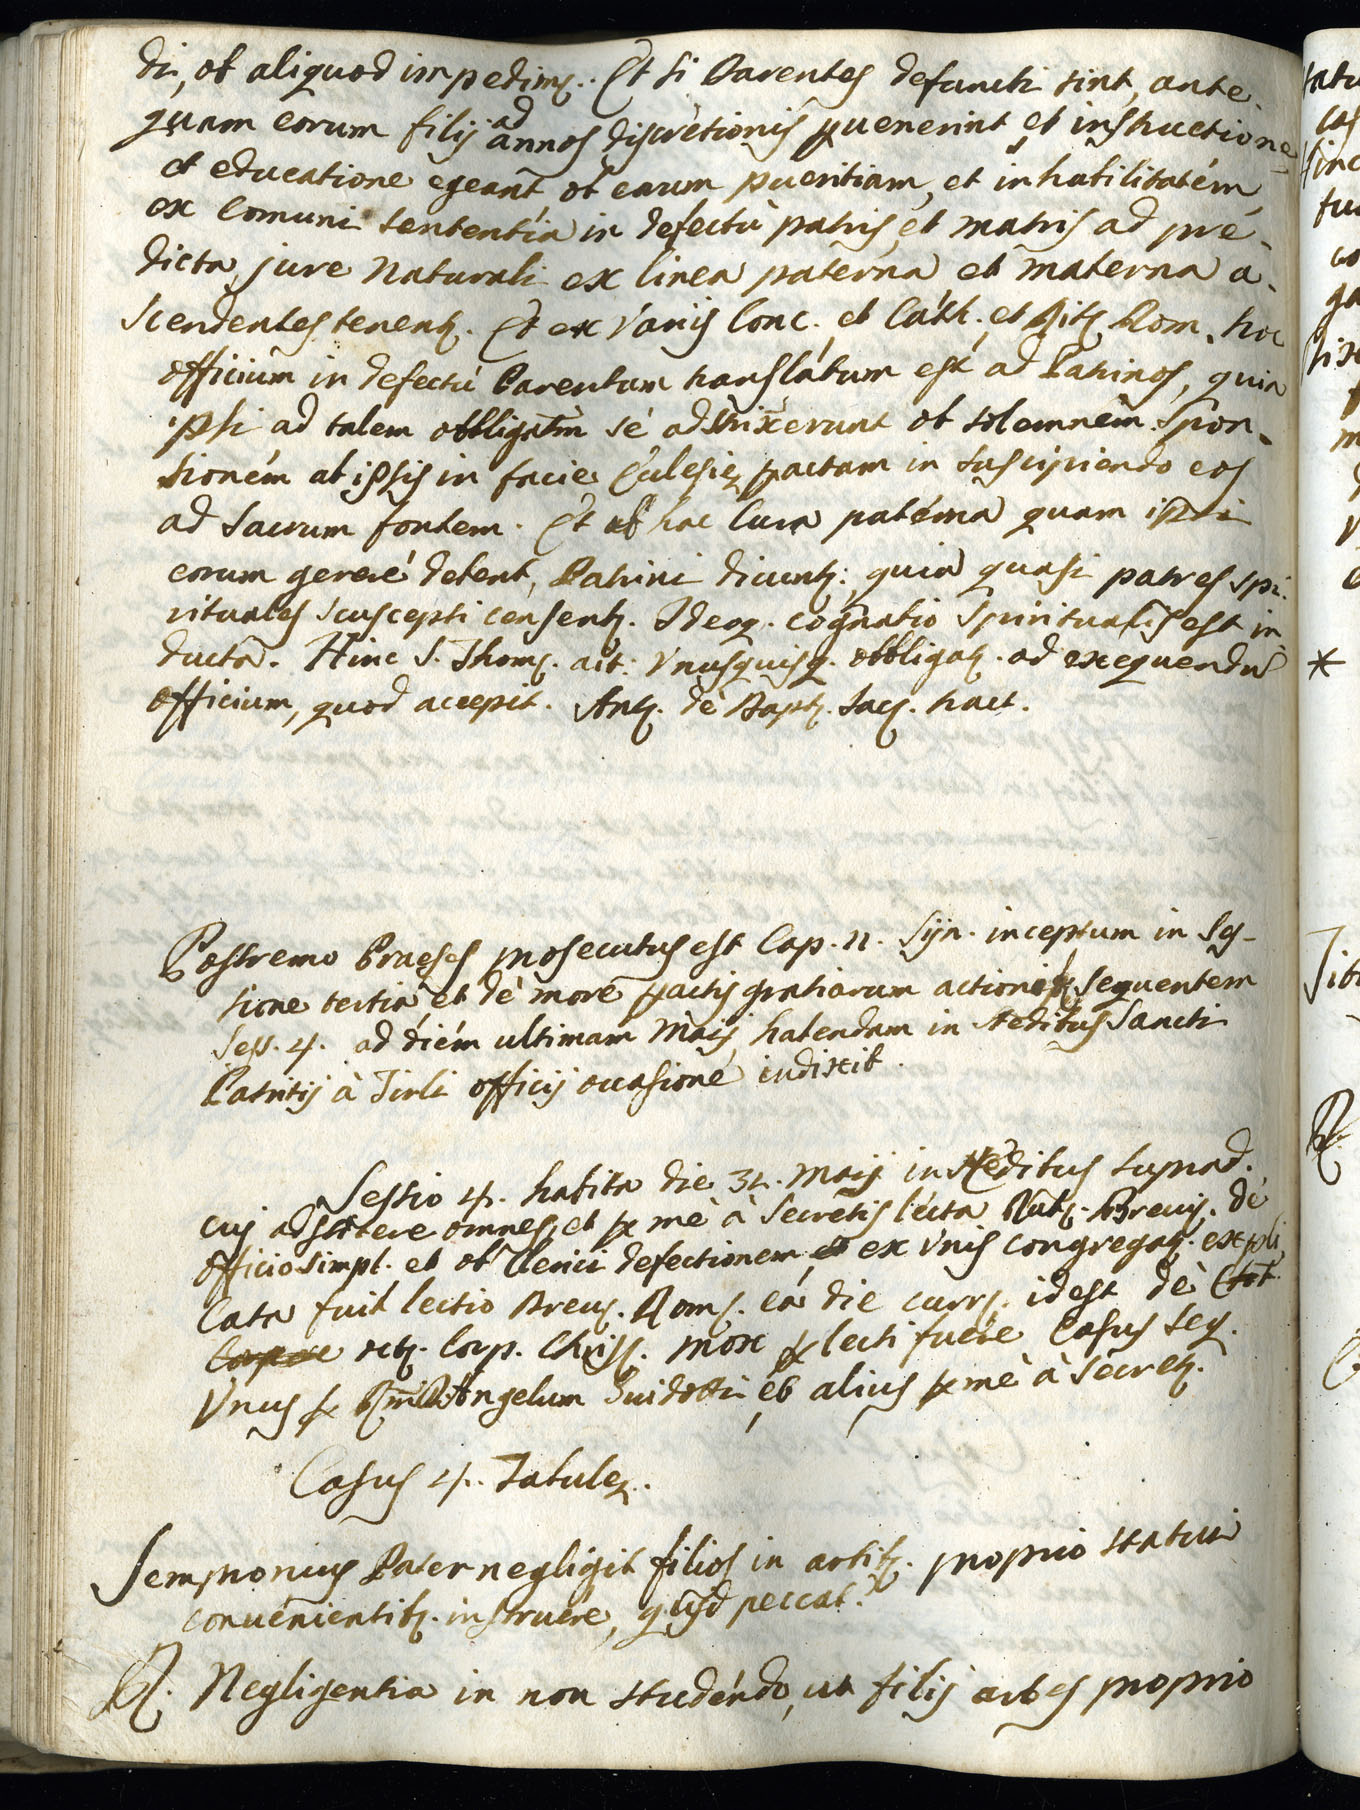 di, ob aliquod impedimẽ. Et si Parentes defuncti sint, ante-
quam eorum filij ad annos discretionis pueuenerint et instructione
et educatione egeant ob earum pueritiam, et inhabilitatem
ex Comuni sententia in defectu patris, et matris ad pre-
dicta jure Naturali ex linea paterna et materna a-
scendentes tenentʒ. Et ex varijs Conc. et Cath. et Ritʒ Rom. hoc
officium in defectù Parentum translatum est ad Patrinos, quia
ipsi ad talem obbligatm̃ sé adstrixerunt ob solemnem spon-
sioném ab ipsis in facie Eclesie factam in suscipiendo eos
ad Sacrum fontem. Et ab hac Cura paterna quam ipsi
eorum gereré debent, Patrini dicuntʒ: quia quasi patres spi-
rituales scuscepti censentʒ. Ideoqʒ. cognatio Spiritualis est in
ducta. Hinc S. Thomʒ. ait: Vnusquisqʒ. obbligatʒ. ad exequendũ
officium, quod accepit. Antʒ. dè Baptʒ. Sacʒ. hact.
Postremo Praeses prosecutus est Cap. 11. Sijn. inceptum in Ses-
sione tertia, et dè moré factis gratiarum actionibʒ sequentem
Sess. 4. ad diém ultimam Maij habendam in Aedibus Sancti
Patritij à Tirli officij occasioné indixit.
Sessio 4. habita die 31. Maij in Aedibus suprad.
cuj adstitere omnes, et p mè à Secretis lécta Rubʒ. Breuʒ. dé
officio simpl. et ob Clerici defectionem ex vnis congregatʒ. expli
Cata fuit lectio Breuʒ. Romʒ. eá die currʒ. idest dè
octʒ. Corp. Chrisʒ. mox p lecti fuére Casus seq.
Vnus p Rm̃ D. Angelum Guidotti, et alius p mè à Secretʒ.
Casus 4. Tabulęʒ.
Sempronius Pater negligit filios in artibʒ. proprio statui
conuenientibʒ. instruére, quid peccat?
R. Negligentia in non studéndo, ut filij artes proprio